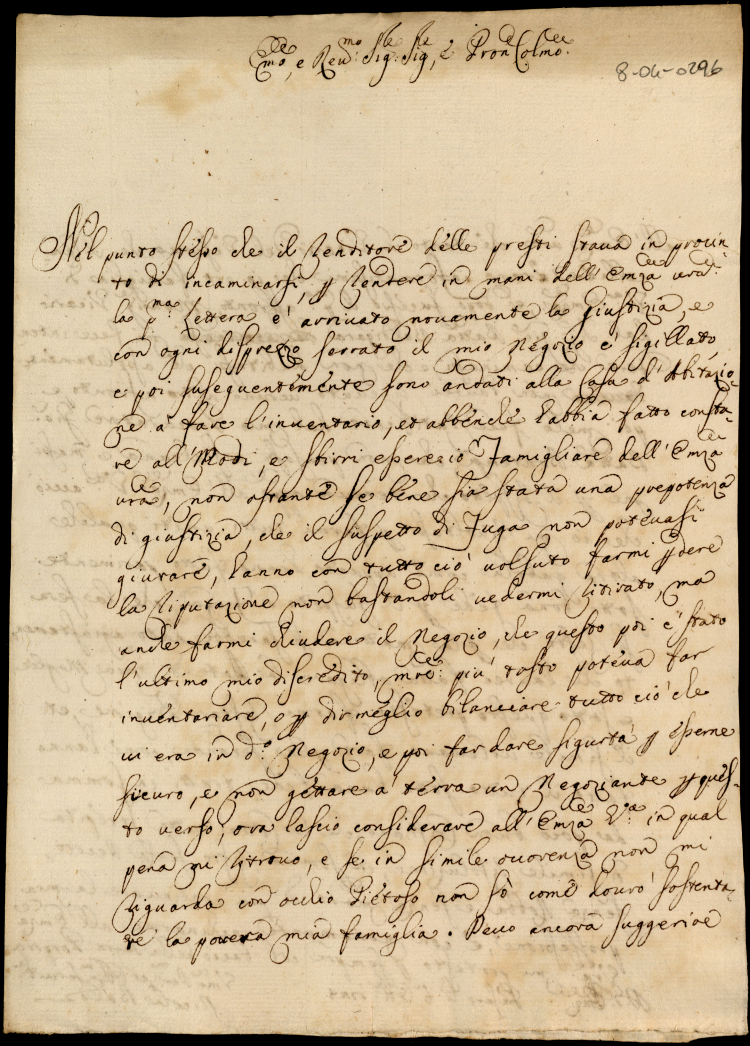 Emo, e Revmo Sig: Sig, e Pron Colmo
8-04-0296
Nel punto stesso che il Renditore delle presti stava in procin-
to di incaminarsi, p Rendere in mani dell' Emza vra
la pma Lettera è arrivato novamente la Giustizia, e
con ogni disprezzo serrato il mio Negozio e sigillato,
e poi suseguentemente sono andati alla Casa d'Abitazio-
ne a fare l'inventario, et abbenche habbia fatto consta-
re all' e sbirri essere io Famigliare dell' Emza
vra, non ostante se bene sia stata una prepotenza
di giustizia, che il suspetto di Fuga non potevasi
giurare, hanno con tutto ciò volsuto farmi pdere
la Riputazione non bastandoli vedermi ritirato, ma
anche farmi chiudere il Negozio, che questo poi è stato
l'ultimo mio discredito, più tosto poteva far
inventariare, o p dir meglio bilanciare tutto ciò che
vi era in do: Negozio, e poi far dare sigurtà p esserne
sicuro, e non gettare a terra un Negoziante p ques-
to verso, ora lascio considerare all' Emza Va in qual
pena mi Ritrovo, e se in simile ocorenza non mi
Riguarda con occhio Pietoso non sò come dovrò sostenta-
re la povera mia famiglia. Devo ancora suggerire